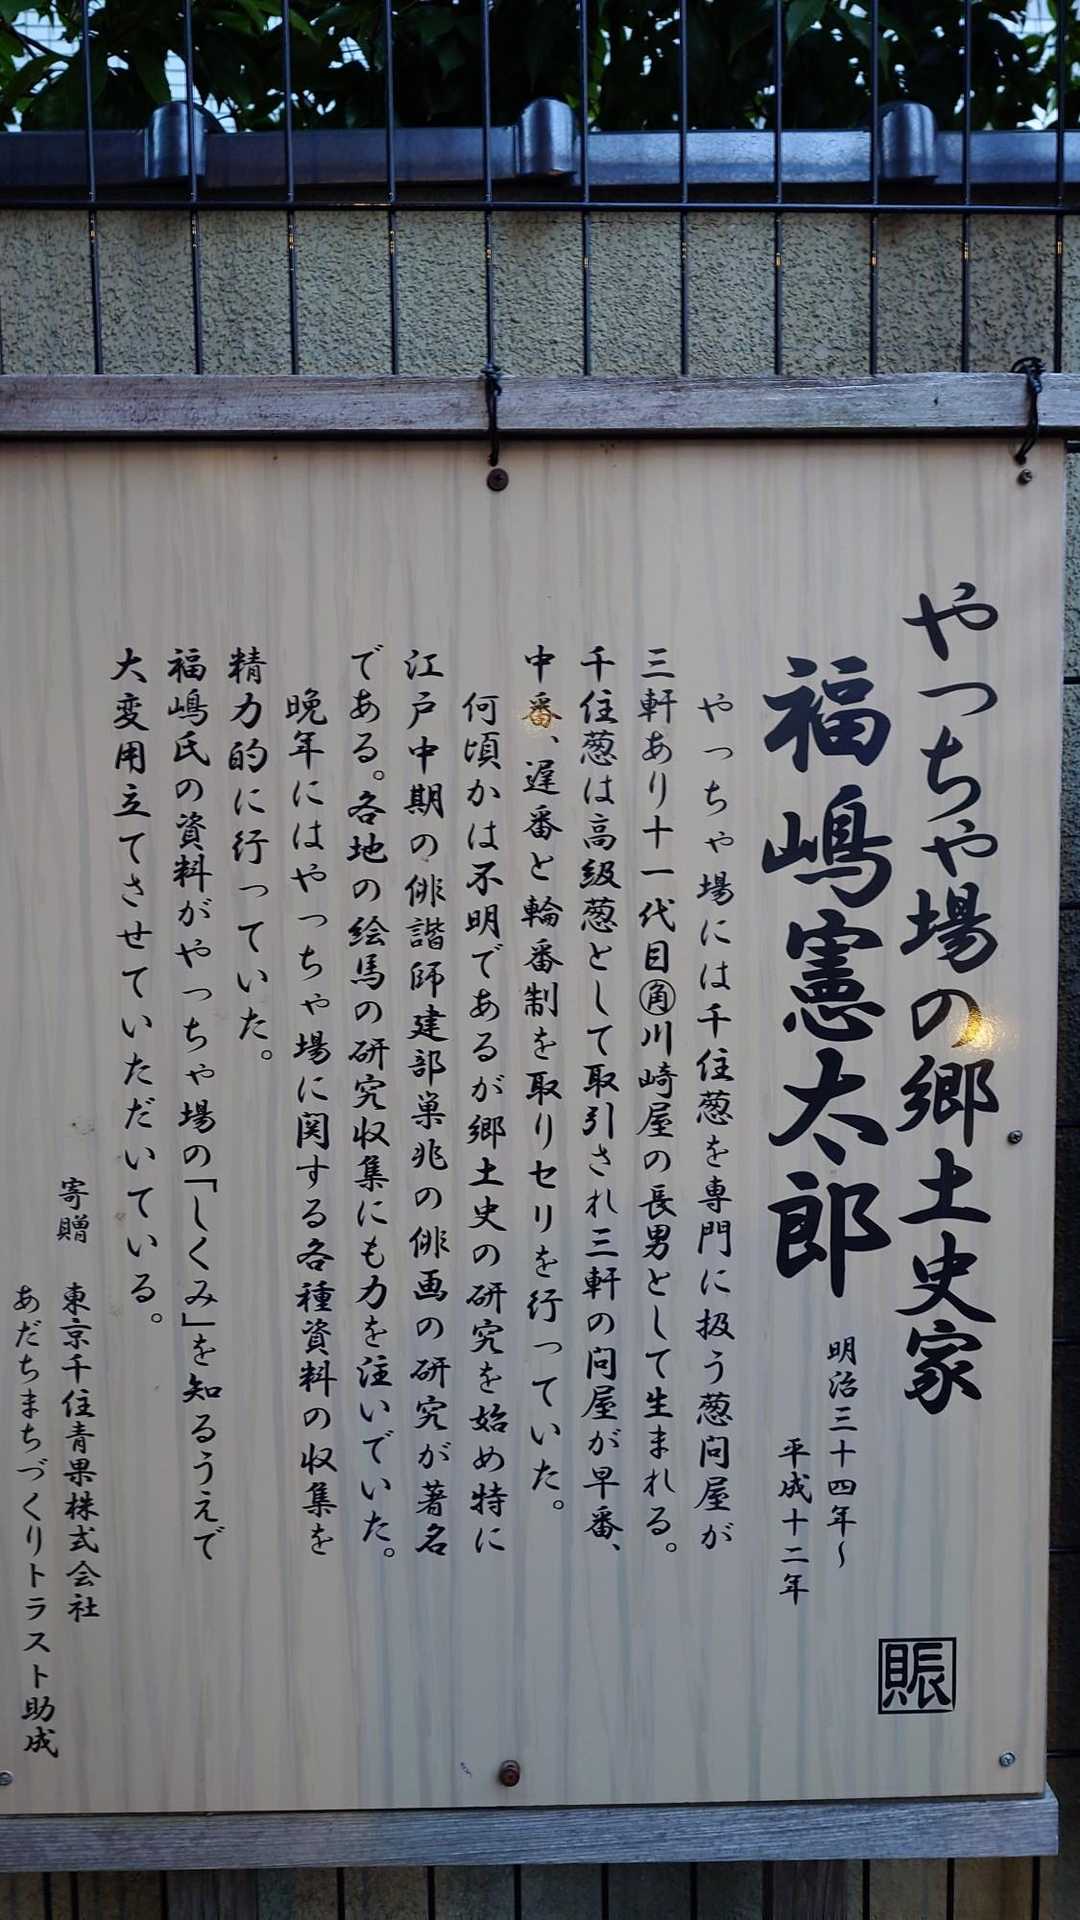 やっちゃ場の郷土史家
福嶋憲太郎
明治三十四年～
平成十二年
賑
やっちゃ場には千住葱を専門に扱う葱問屋が
三軒あり十一代目㊂川崎屋の長男として生まれる。
千住葱は高級葱として取引され三軒の問屋が早番、
中番、遅番と輪番制を取りセリを行っていた。
何頃かは不明であるが郷土史の研究を始め特に
江戸中期の俳諧師建部巣兆の俳画の研究が著名
である。各地の絵馬の研究収集にも力を注いでいた。
晩年にはやっちゃ場に関する各種資料の収集を
精力的に行っていた。
福嶋氏の資料がやっちゃ場の「しくみ」を知るうえで
大変用立てさせていただいている。
寄贈 東京千住青果株式会社
あだちまちづくりトラスト助成